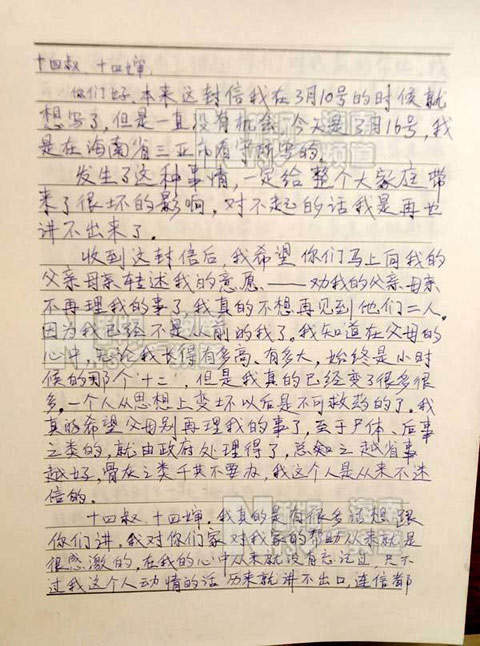 十四叔、十四婶
你们好，本来这封信我在3月10号的时候就
想写了，但是一直没有机会，今天是3月16号，我
是在海南省三亚市看守所写的。
发生了这种事情，一定给整个大家庭带
来了很坏的影响，对不起的话我是再也
讲不出来了。
收到这封信后，我希望你们马上向我的
父亲母亲转述我的意愿——劝我的父亲母亲
不再理我的事了，我真的不想再见到他们二人。
因为我已经不是从前的我了。我知道在父母的
心中，无论我长得有多高、有多大，始终是小时
候的那个"十二"，但是我真的已经变了很多很
多。一个人从思想上变坏以后是不可救药的了。我
真的希望父母别再理我的事了，至于尸体、后事
之类的，就由政府处理得了，总知之越省事
越好，骨灰之类千其不要办，我这个人是从来不迷
信的。
十四叔、十四婶，我真的是有很多话想跟
你们讲，我对你们家对我家的帮助从来就是
很感激的，在我的心中从来就没有忘记过，只不
过我这个人动情的话历来就讲不出口，连信都